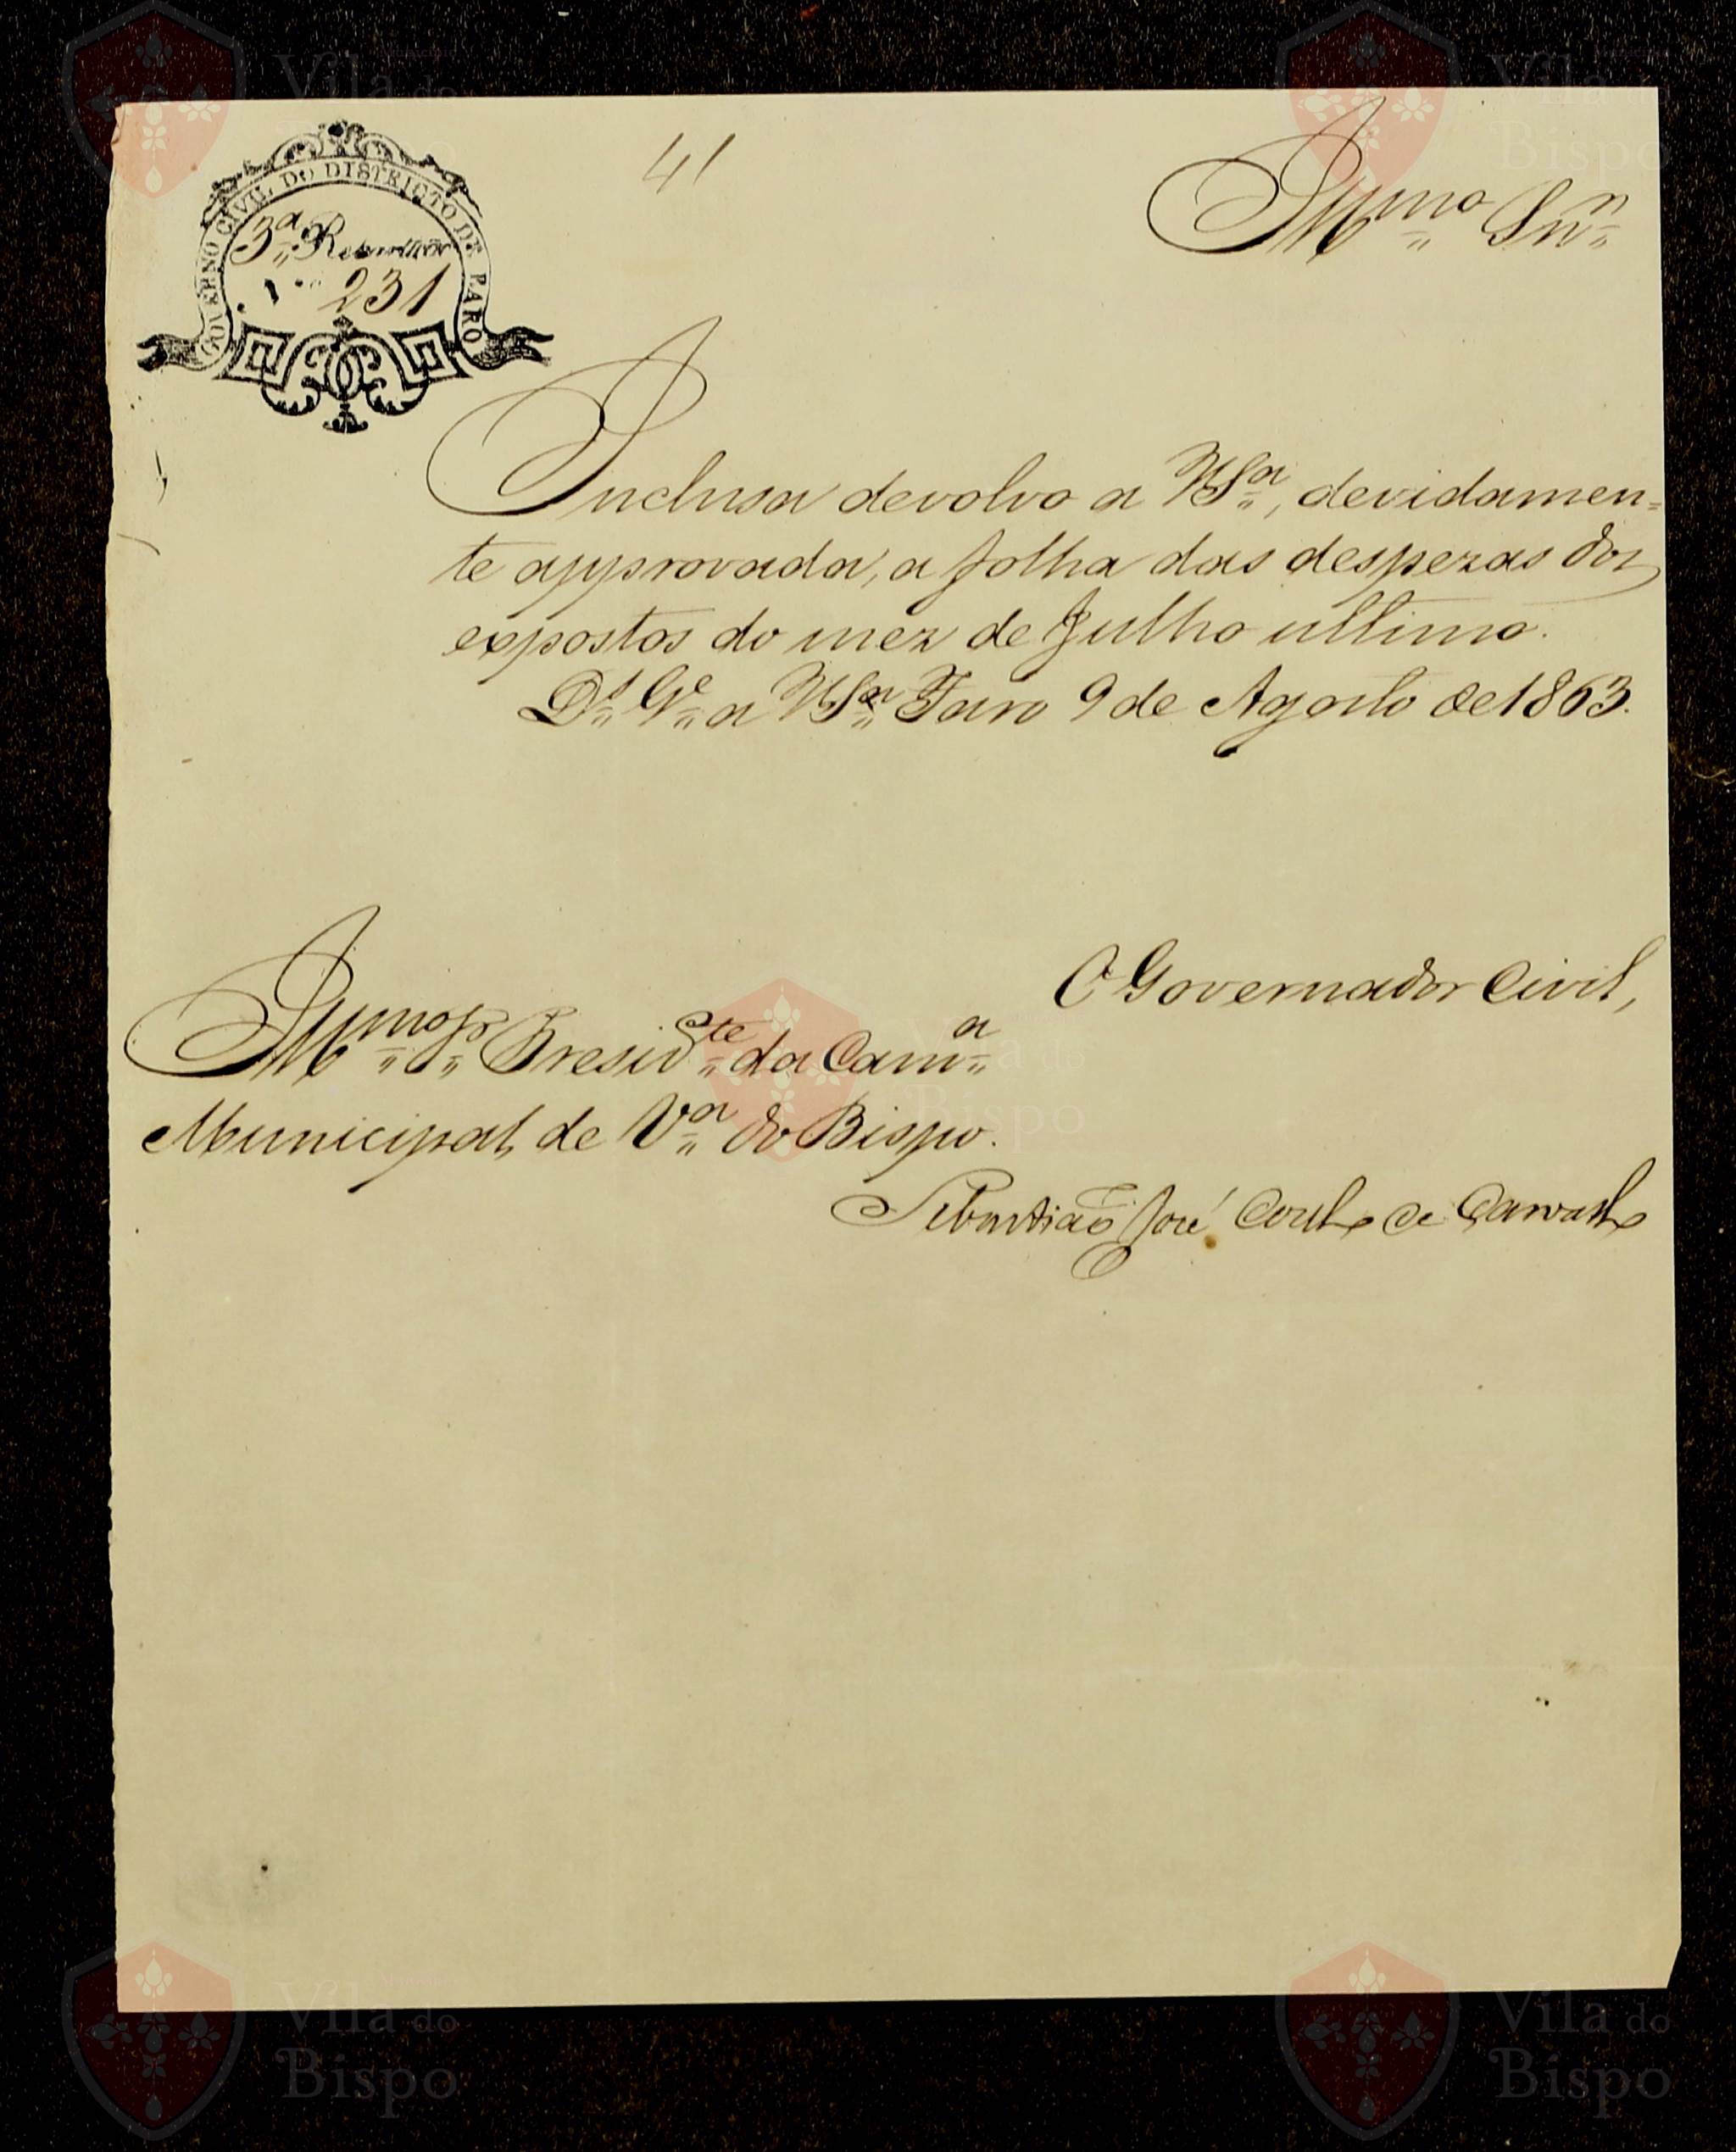 41
GOVERNO CIVIL DO DISTRICTO DE FARO
3ª Repartição
Nº 231
Illmo Snr
Inclusa devolvo a VSª, devidamen=
te approvada, a folha das despezas dos
expostos do mez de Julho ultimo.
Ds Ge a VSª Faro 9 de Agosto de 1863.
O Governador Civil,
Illmo Sr Presidte da Camª
Municipal de Vª do Bispo.
Sebastião José Coelho de Carvalho
Vila do
Bispo